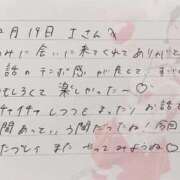 月19日 Iさんへ
みに会いに来てくれてありがと
話のテンポ感が良くて すっ
もしろくて楽しかったー♡
チャイチャしつつもまったりお話も
間あっていう間だったね!今
たっぷしまた やってみようね♡